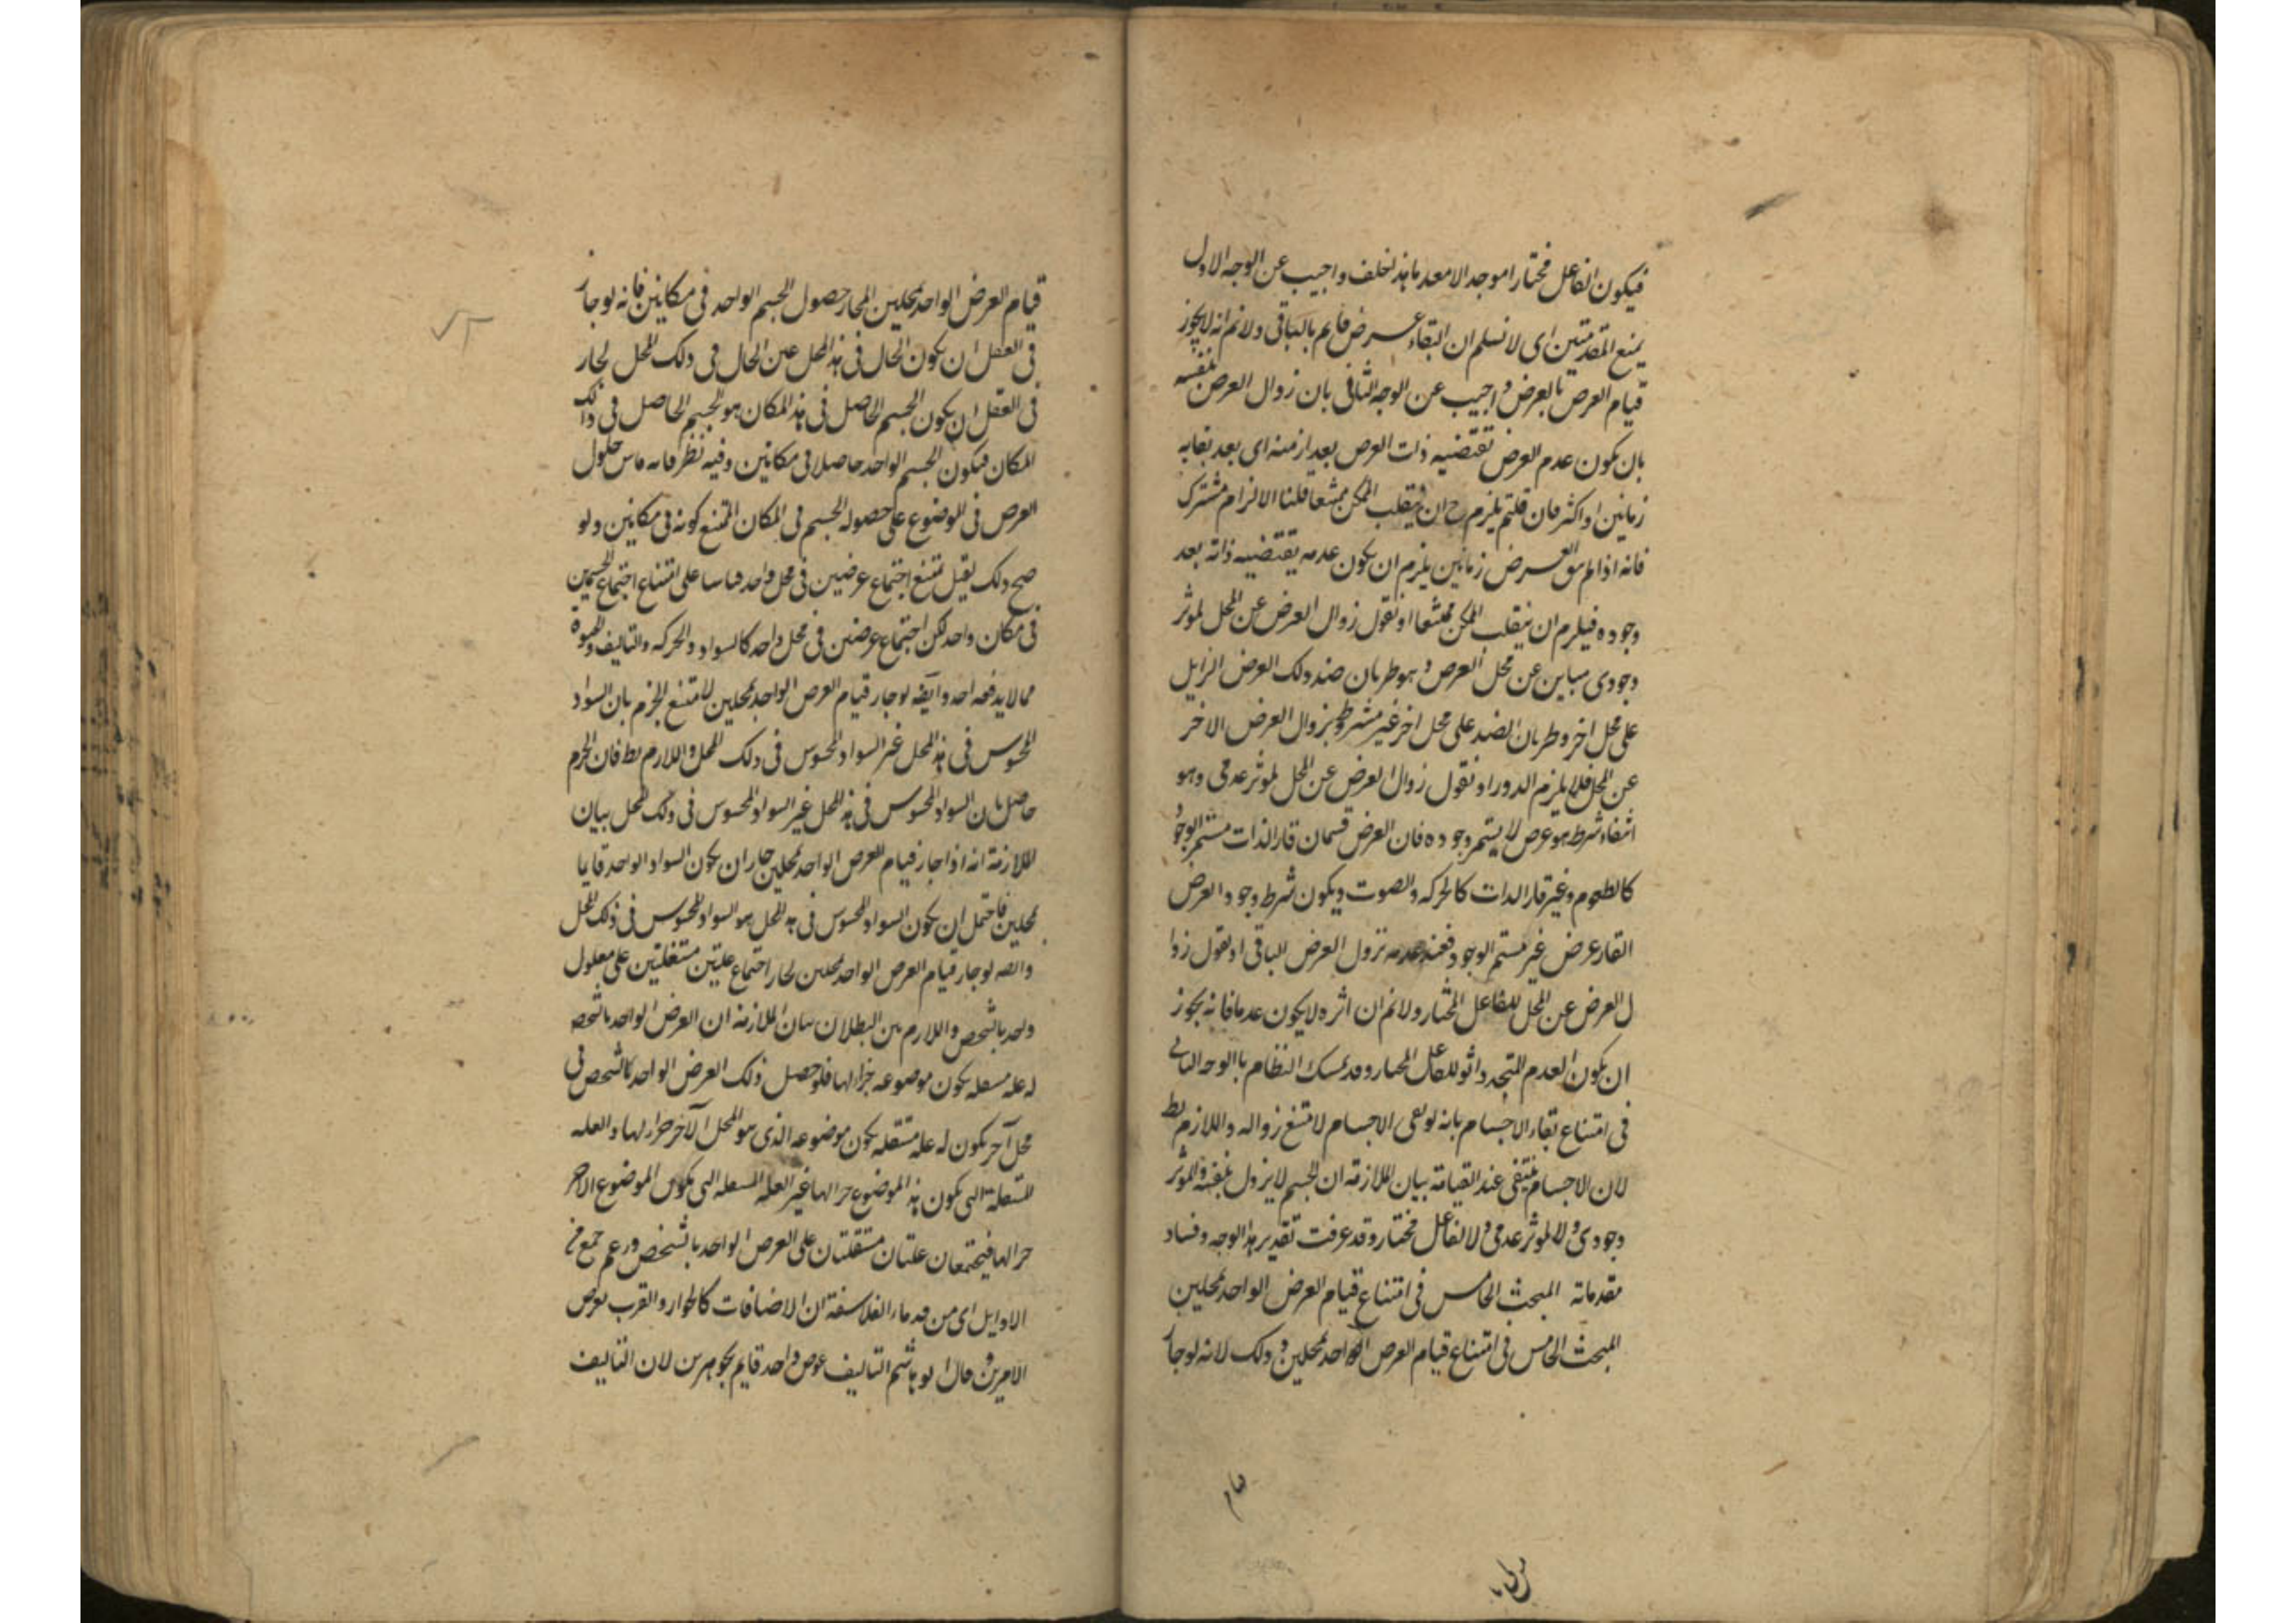 فيكون الفاعل مختارا موجدا لا معدما هذا خلف واجيب عن الوجه الاول
بمنع المقدمتين اى لا نسلم ان البقاء عرض قايم بالباقى ولا نم انه لا يجوز
قيام العرض بالعرض واجيب عن الوجه الثانى بان زوال العرض بنفسه
بان يكون عدم العرض تقتضيه ذات العرض بعد ازمنه اى بعد بقايه
زمانين او اكثر فان قلتم يلزم ح ان ينقلب الممكن ممتنعا قلنا الالزام مشترك
فانه اذا لم يبق العرض زمانين يلزم ان يكون عدمه يقتضيه ذاته بعد
وجوده فيلزم ان ينقلب الممكن ممتنعا او نقول زوال العرض عن المحل لموثر
وجودى مباين عن محل العرض وهو طريان ضد ذلك العرض الزايل
على محل اخر وطريان الضد على محل اخر غير مشروط بزوال العرض الاخر
عن المحل فلا يلزم الدور او نقول زوال العرض عن المحل لموثر عدمى وهو
انتفاء شرط هو عرض لا يستمر وجوده فان العرض قسمان قار الذات مستمر الوجود
كالطعوم وغير قار الذات كالحركه والصوت ويكون شرط وجود العرض
القار عرض غير مستمر الوجود فعند عدمه تزول العرض الباقى او نقول زوا
ل العرض عن المحل للفاعل المختار ولا نم ان اثره لا يكون عدما فانه يجوز
ان يكون العدم المتجدد اثر للفاعل المختار وقد تمسك النظام بالوجه الثانى
فى امتناع بقاء الاجسام بانه لو بقى الاجسام لامتنع زواله واللازم بط
لان الاجسام تنتفى عند القيامة بيان الملازمة ان الجسم لا يزول بنفسه ولا لموثر
وجودى ولا لموثر عدمى ولا لفاعل مختار وقد عرفت تقدير هذا الوجه وفساد
مقدماته المبحث الخامس فى امتناع قيام العرض الواحد بمحلين
المبحث الخامس فى امتناع قيام العرض الواحد بمحلين وذلك لانه لو جاز
قيام
قيام العرض الواحد بمحلين لجاز حصول الجسم الواحد فى مكانين فانه لو جاز
فى العقل ان يكون الحال فى هذا المحل عين الحال فى ذلك المحل لجاز
فى العقل ان يكون الجسم الحاصل فى هذا المكان هو الجسم الحاصل فى ذلك
المكان فيكون الجسم الواحد حاصلا فى مكانين وفيه نظر فانه قاس حلول
العرض فى الموضوع على حصول الجسم فى المكان الممتنع كونه فى مكانين ولو
صح ذلك لقيل يمتنع اجتماع عرضين فى محل واحد قياسا على امتناع اجتماع الجسمين
فى مكان واحد لكن اجتماع عرضين فى محل واحد كالسواد والحركه والتاليف والحيوة
مما لا يدفعه احد وايضا لو جاز قيام العرض الواحد بمحلين لامتنع الجزم بان السواد
المحسوس فى هذا المحل غير السواد المحسوس فى ذلك المحل واللازم بط فان الجزم
حاصل بان السواد المحسوس فى هذا المحل غير السواد المحسوس فى ذلك المحل بيان
الملازمة انه اذا جاز قيام العرض الواحد بمحلين جاز ان يكون السواد الواحد قايما
بمحلين فاحتمل ان يكون السواد المحسوس فى هذا المحل هو السواد المحسوس فى ذلك المحل
وايضا لو جاز قيام العرض الواحد بمحلين لجاز اجتماع علتين مستقلتين على معلول
واحد بالشخص واللازم بين البطلان بيان الملازمة ان العرض الواحد بالشخص
له علة مستقلة يكون موضوعه جزءا لها فلو حصل ذلك العرض الواحد بالشخص فى
محل آخر يكون له علة مستقلة يكون موضوعه الذى هو المحل الآخر جزءا لها والعلة
المستقلة التى يكون هذا الموضوع جزءا لها غير العلة المستقلة التى يكون الموضوع الاخر
جزءا لها فيجتمعان علتان مستقلتان على العرض الواحد بالشخص وزعم جمع من
الاوايل اى من قدماء الفلاسفة ان الاضافات كالجوار والقرب يعرض
الامرين وقال ابو هاشم التاليف عرض واحد قايم بجوهرين لان التاليف